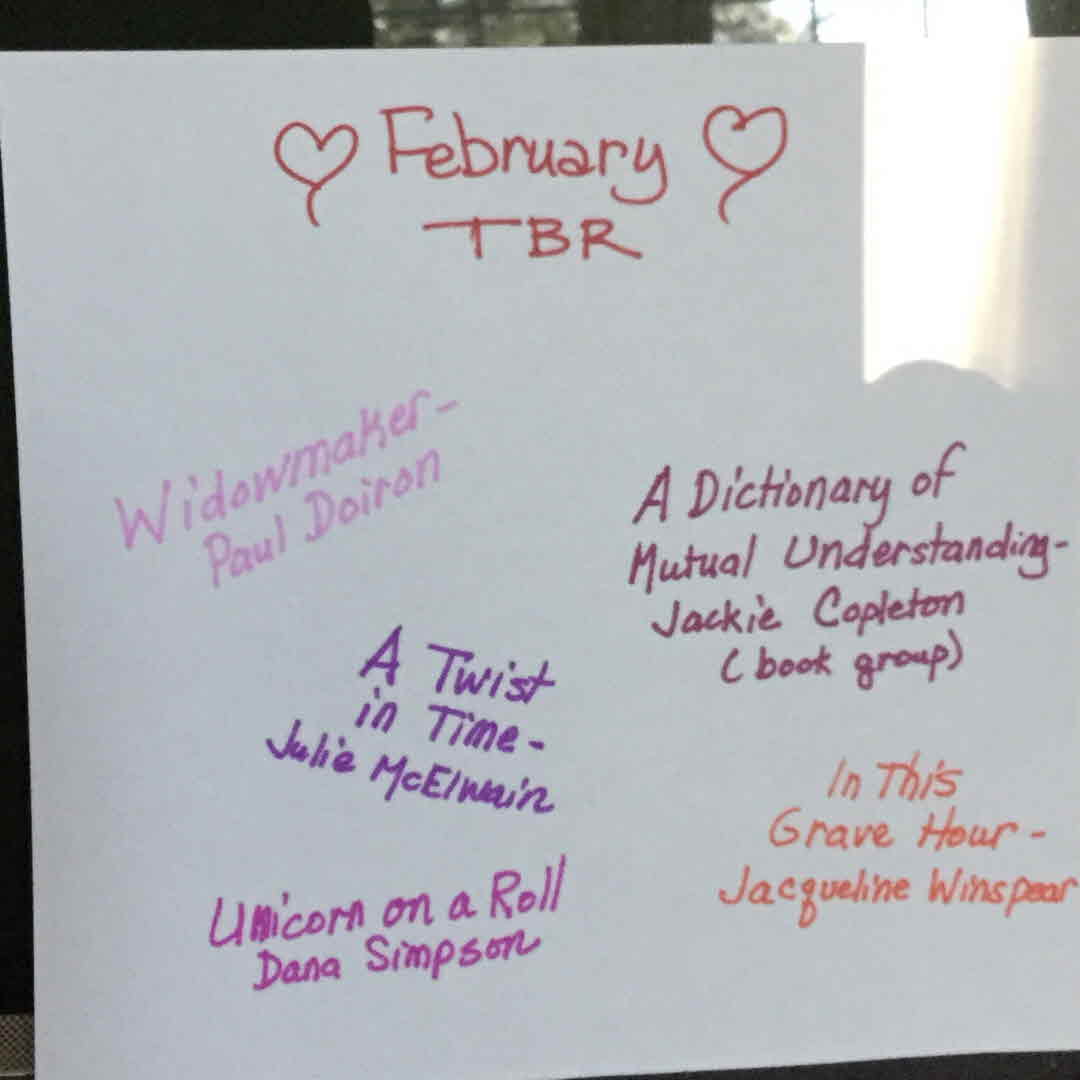 February
TBR
Widowmaker-
Paul Doiron
A Dictionary of
Mutual Understanding-
Jackie Copleton
(book group)
A Twist
in Time-
Julie McElwain
In This
Grave Hour-
Jacqueline Winspear
Unicorn on a Roll
Dana Simpson